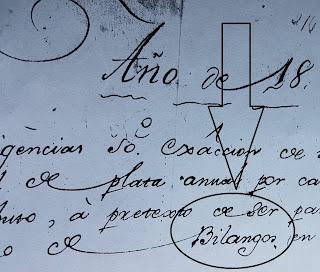 216
Año de 18.
igencias so. exaccion de
l de plata annual por ca
huso, à pretexto de ser pa
o de Bilangos, en